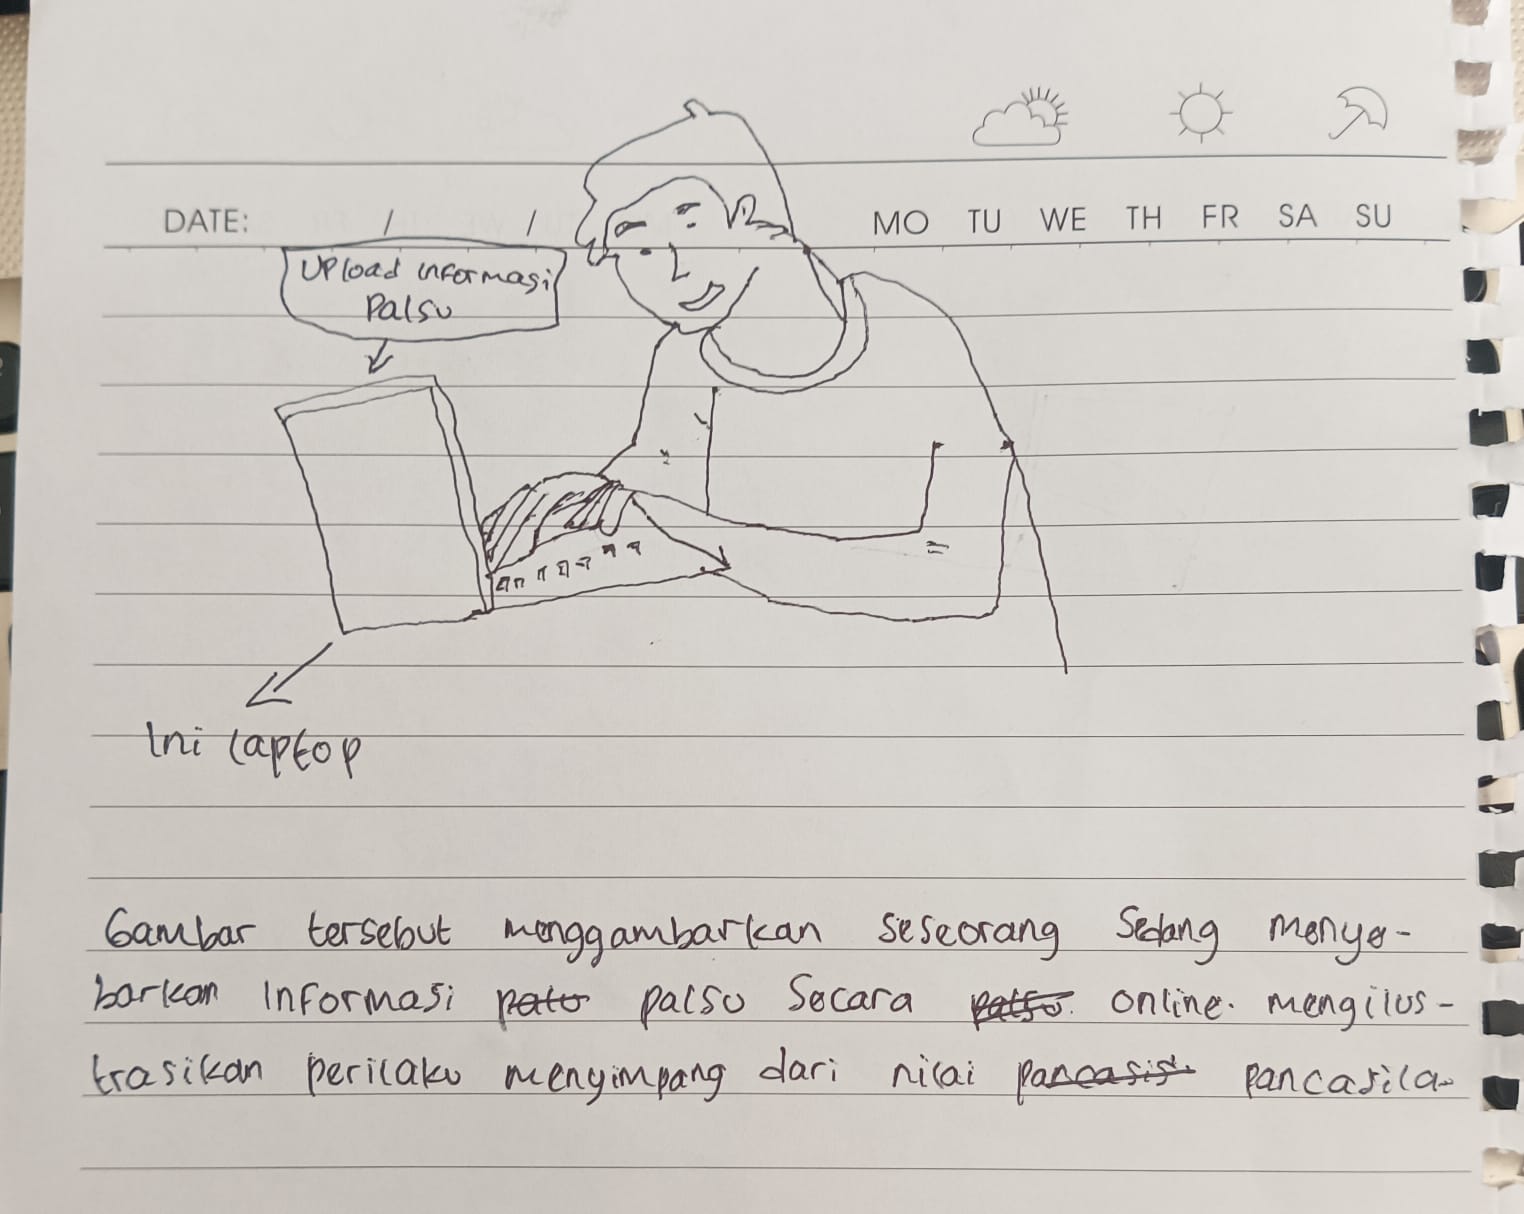 DATE: / /
MO TU WE TH FR SA SU
Upload informasi
Palsu
Ini laptop
Gambar tersebut menggambarkan seseorang sedang menye-
barkan informasi palsu secara online. mengilus-
trasikan perilaku menyimpang dari nilai pancasila.